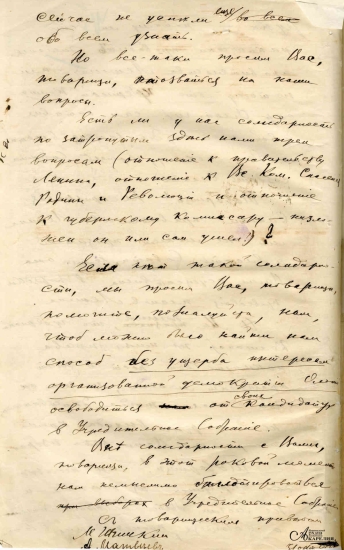 сейчас не успели еще во всем
обо всем узнать.
Но все-таки просим Вас,
товарищи, отозваться на наши
вопросы.
Есть ли у нас солидарность
по затронутым здесь нами трем
вопросам (отношение к правительству
Ленина, отношение к Вс. Ком. Спасения
Родины и Революции и отношение
к губернскому комиссару — низло-
жен он или сам ушел)?
Если нет такой солидарно-
сти, мы просим Вас, товарищи,
помогите, пожалуйста, нам,
чтоб можно было найти нам
способ без ущерба интересам
организованной демократии
освободиться от своей кандидатуры
в Учредительное Собрание.
Без солидарности с Вами,
товарищи, в этой роковой момент
нам немыслимо баллотироваться
в Учредительное Собрание
С товарищеским приветом
М.
А. Матвеев
АРХИВ
КАРЕЛИИ